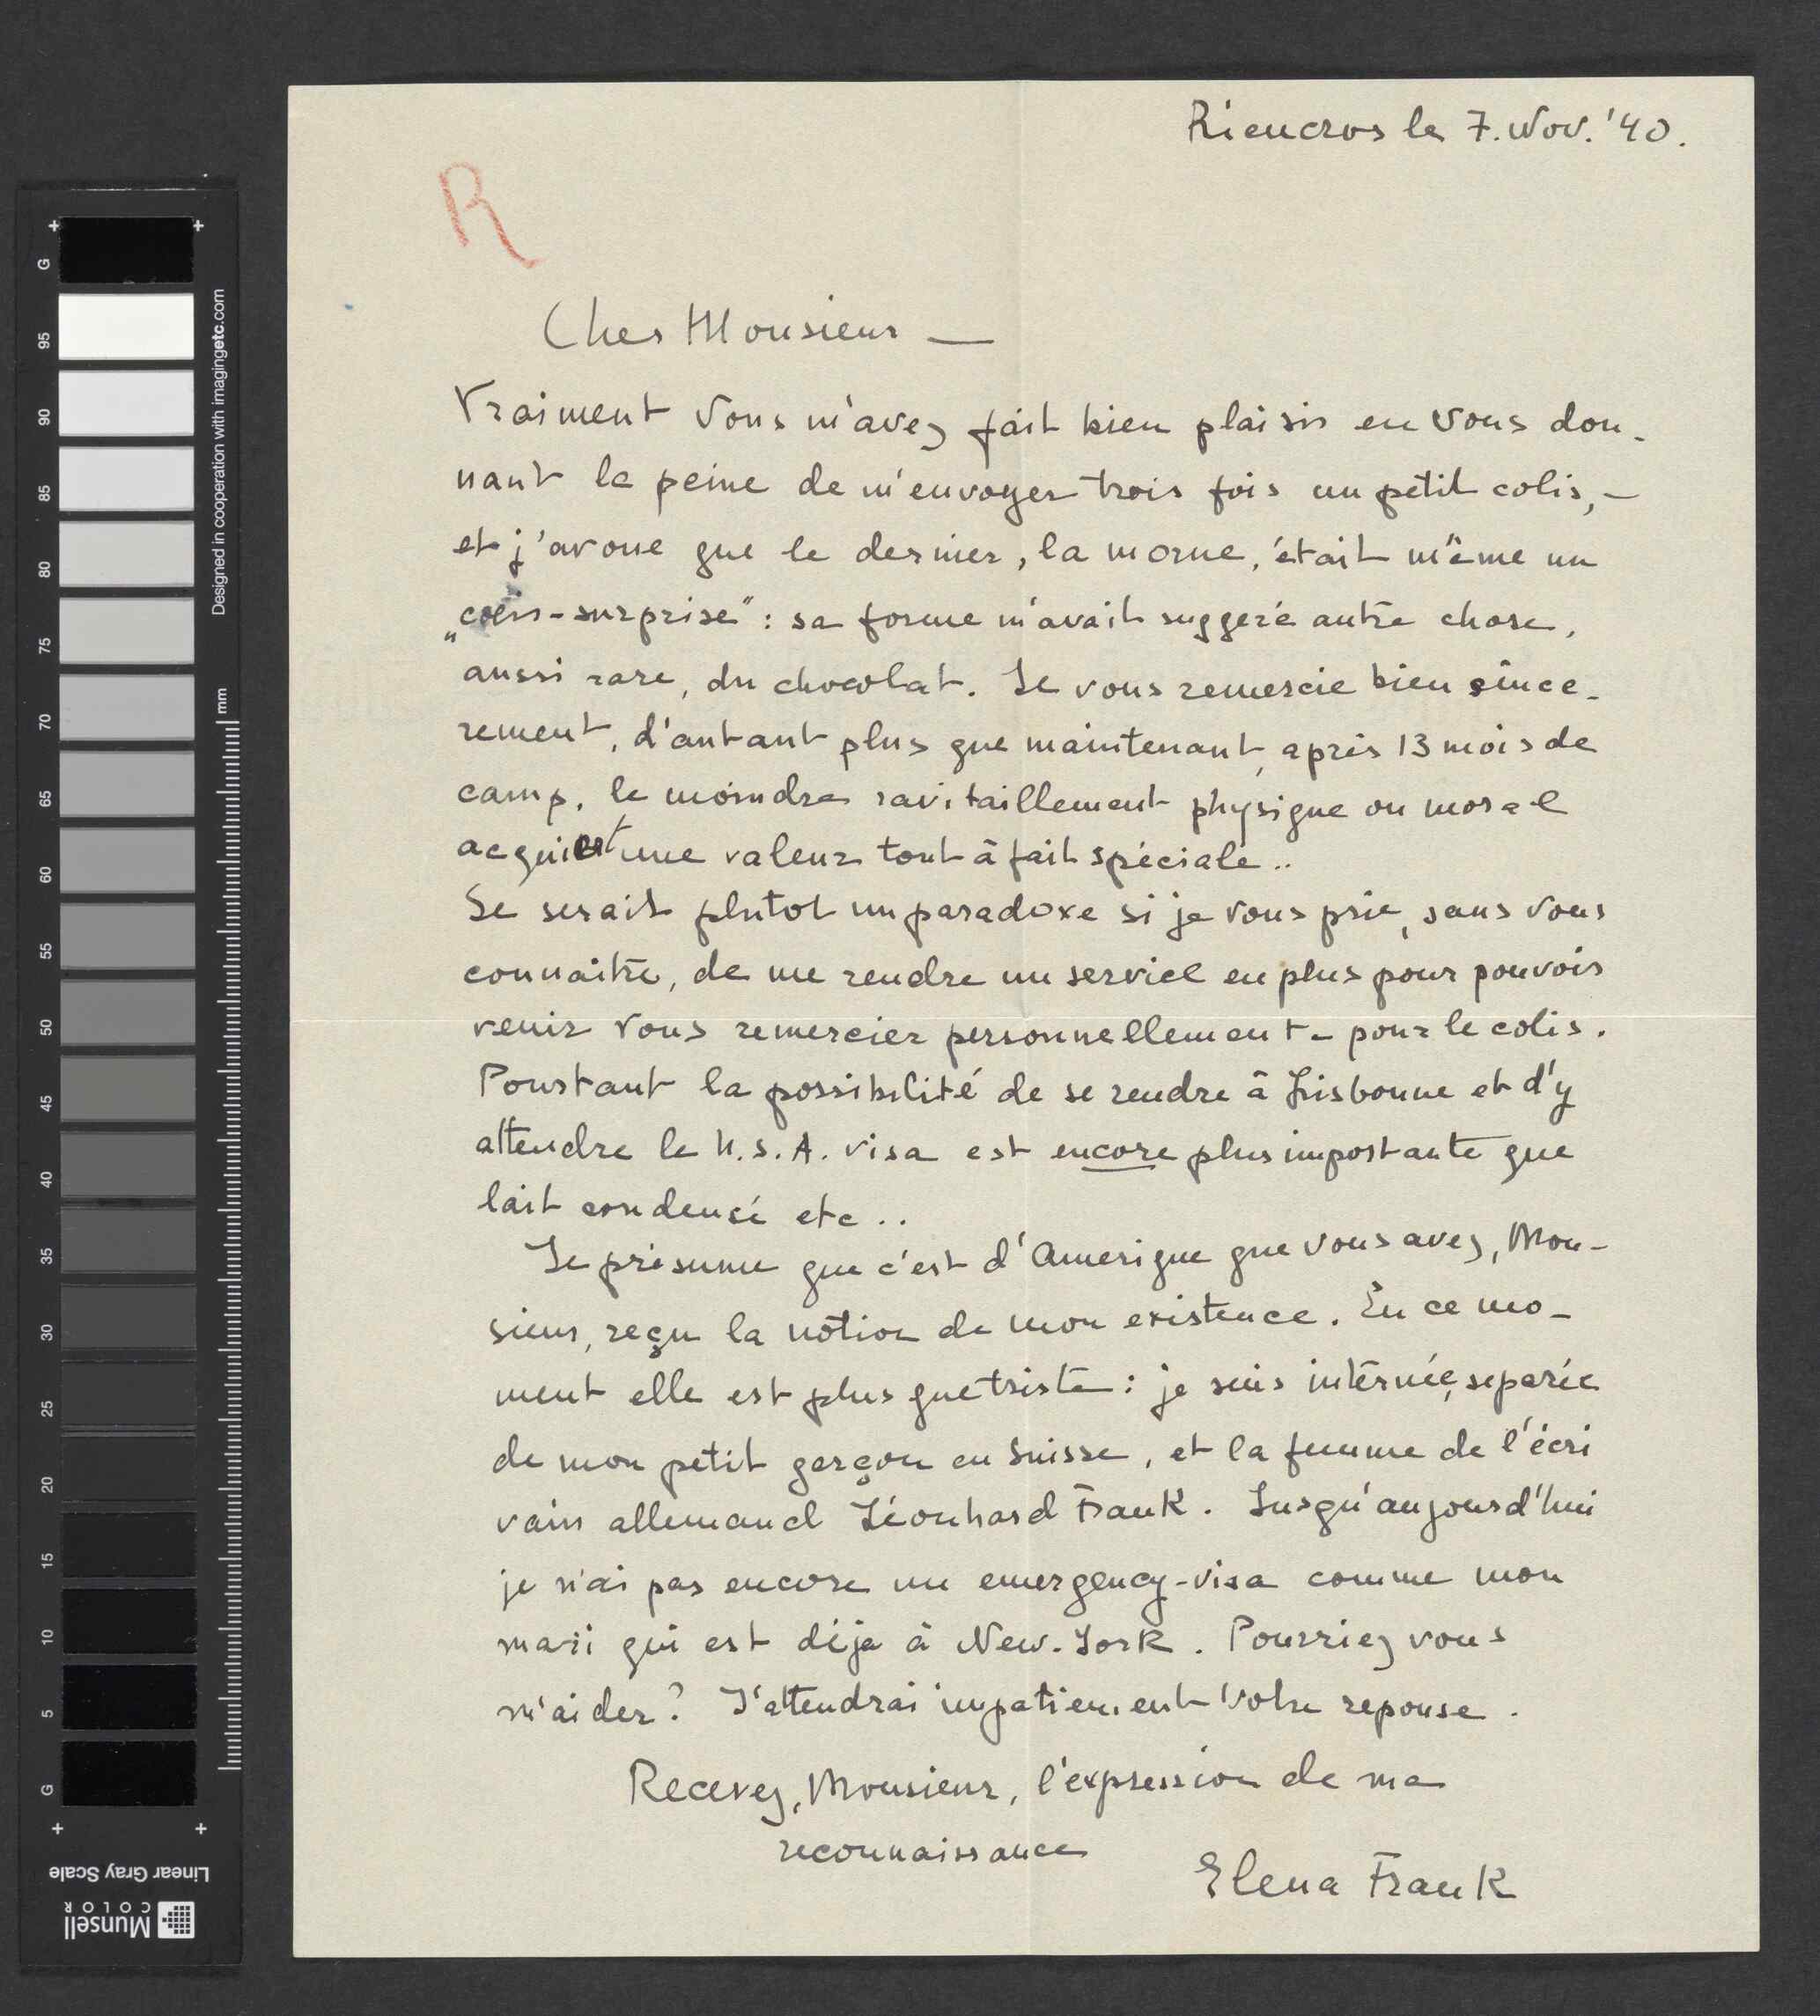 Rieucros le 7. Nov. '40.
R
Cher Monsieur —
Vraiment Vous m'avez fait bien plaisir en Vous don-
nant la peine de m'envoyer trois fois un petit colis, –
et j'avoue que le dernier, la morue, était même un
„colis-surprise": sa forme m'avait suggeré autre chose,
aussi rare, du chocolat. Je vous remercie bien since-
rement, d'autant plus que maintenant, après 13 mois de
camp, le moindre ravitaillement physique ou moral
acquiert une valeur tout à fait spéciale..
Se serait plutot un paradoxe si je vous prie, sans vous
connaitre, de me rendre un service en plus pour pouvoir
venir vous remercier personnellement – pour le colis.
Pourtant la possibilité de se rendre à Lisbonne et d'y
attendre le U.S.A. visa est encore plus importante que
lait condensé etc..
Je présume que c'est d'Amerique que vous avez, Mon-
sieur, reçu la notion de mon existence. En ce mo-
ment elle est plus que triste: je suis internée, separée
de mon petit garçon en Suisse, et la femme de l'écri
vain allemand Léonhard Frank. Jusqu'aujourd'hui
je n'ai pas encore un emergency-visa comme mon
mari qui est déja à New-York. Pourriez vous
m'aider? J'attendrai impatiemment Votre reponse.
Recevez, Monsieur, l'expression de ma
reconnaissance
Elena Frank
G
95
90
85
80
75
70
65
60
55
50
45
40
35
30
25
20
15
10
5
G
Designed in cooperation with imagingetc.com
mm
Linear Gray Scale
Munsell
COLOR